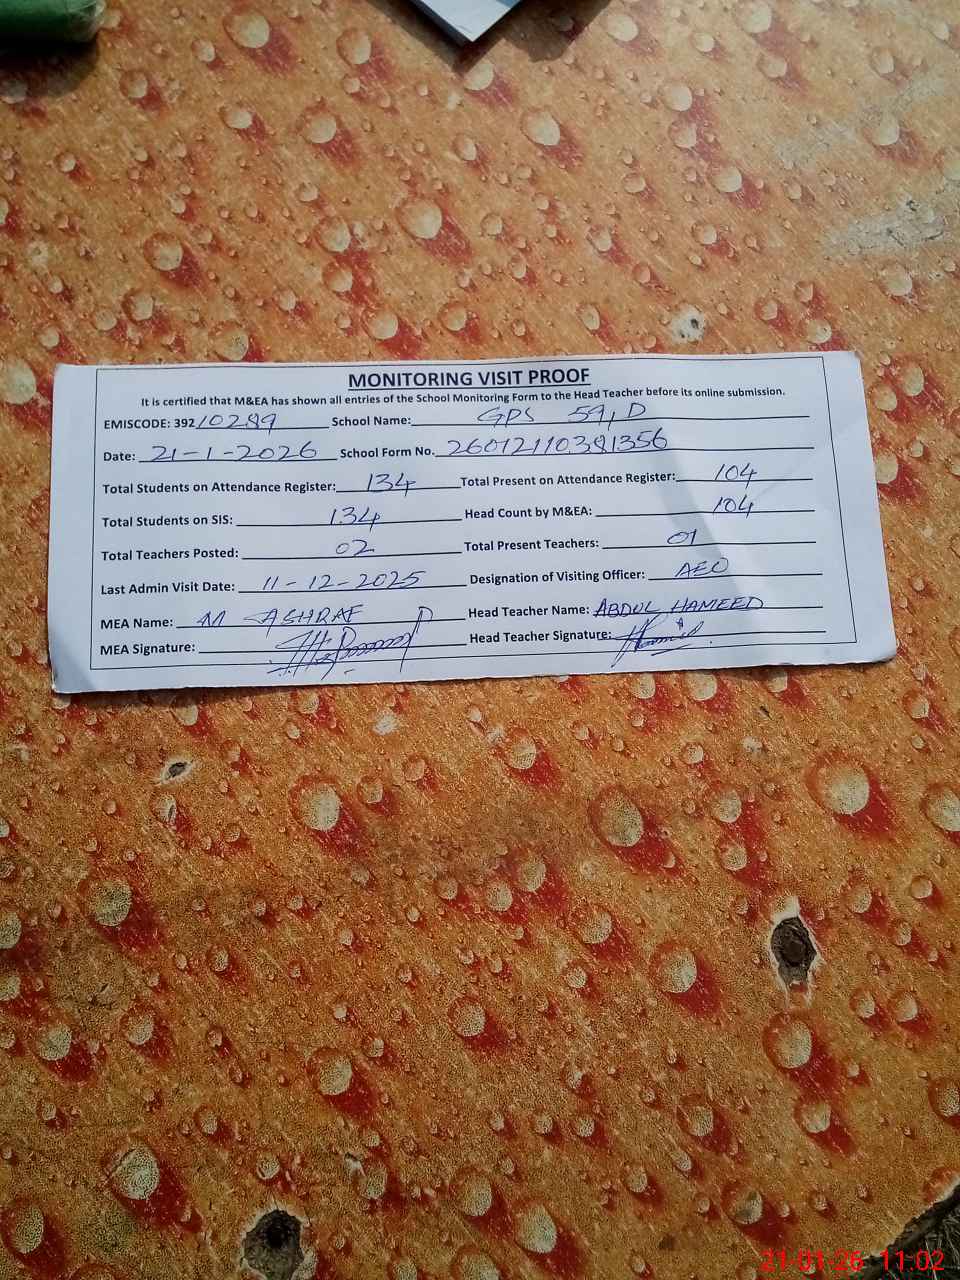 MONITORING VISIT PROOF
It is certified that M&EA has shown all entries of the School Monitoring Form to the Head Teacher before its online submission.
EMISCODE: 392 10289 School Name: GPS 59, D
Date: 21-1-2026 School Form No. 26012110381356
Total Students on Attendance Register: 134 Total Present on Attendance Register: 104
Total Students on SIS: 134 Head Count by M&EA: 104
Total Teachers Posted: 02 Total Present Teachers: 01
Last Admin Visit Date: 11-12-2025 Designation of Visiting Officer: AEO
MEA Name: M ASHRAF Head Teacher Name: ABDUL HAMEED
MEA Signature: Head Teacher Signature:
21-01-26 11:02